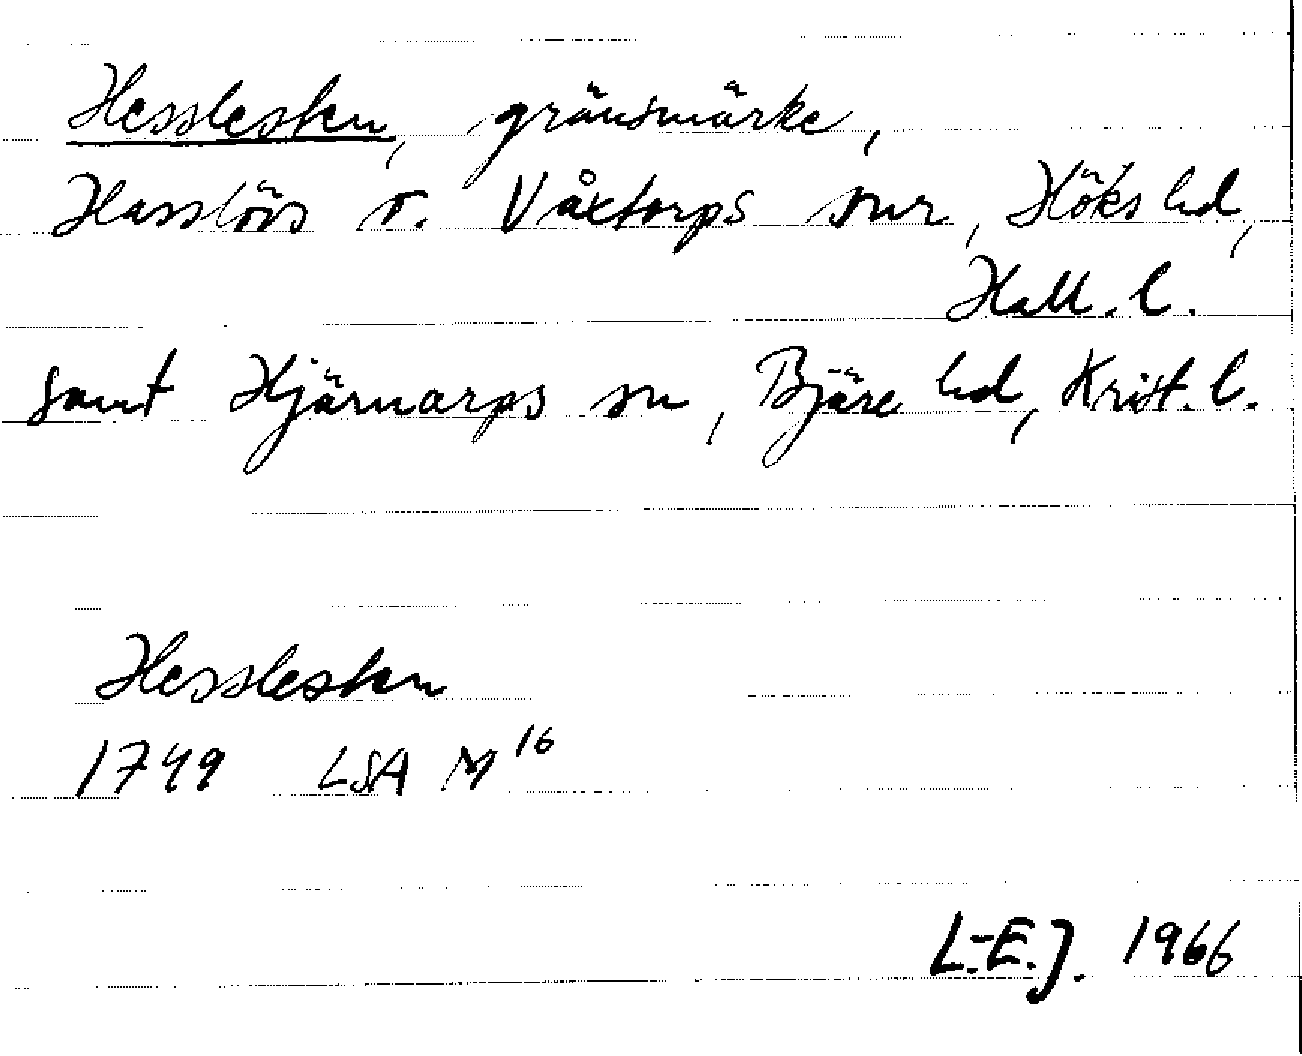 Hesslesten, gränsmärke,
Hasslövs o. Våxtorps snr, Höks hd,
Hall. l.
samt Hjärnarps sn, Bjäre hd, Krist. l.
Hesslesten
1749 LSA M 16
L.-E.J. 1966